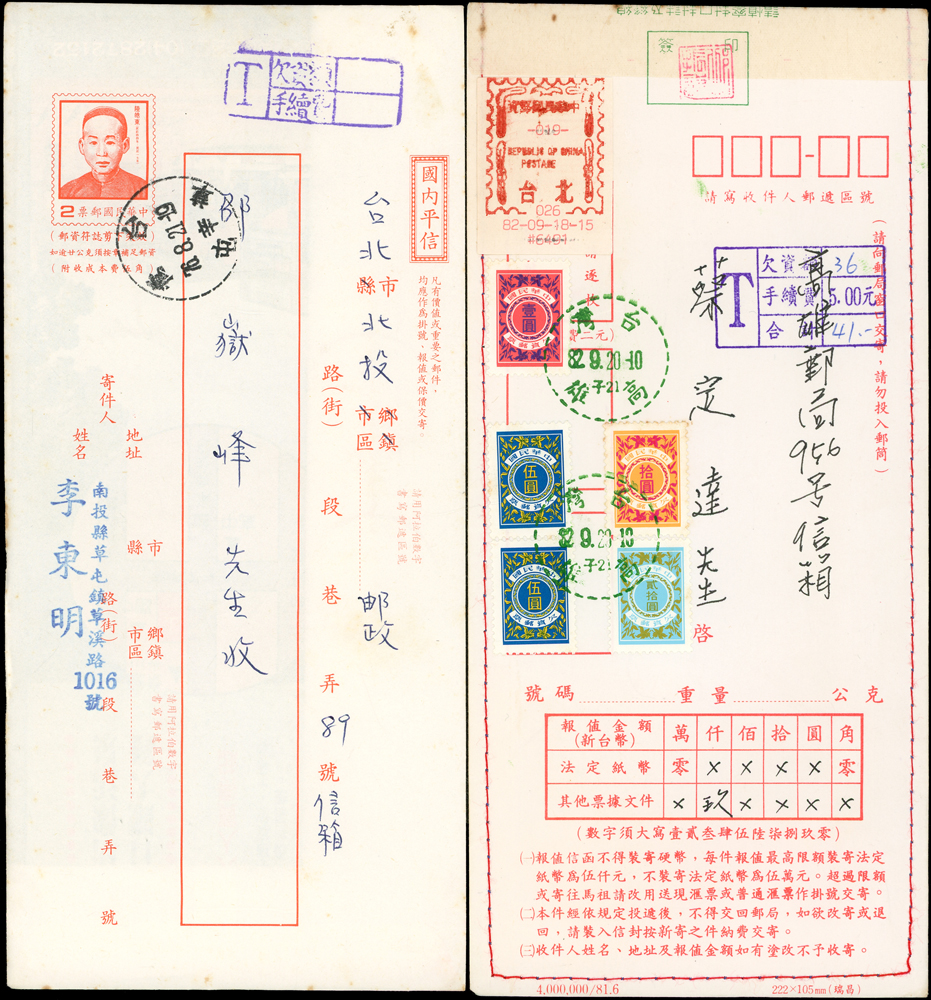 T
欠資額
手續費
陸皓東
2
中華民國郵票
國內平信
凡有價值或重要之郵件，
均應作爲掛號、報值或保價交寄。
台北縣市
北投
鄉鎮
市區
郵政
路(街)
段
巷
弄
89
號
信箱
請用阿拉伯數字
書寫郵遞區號
鄔嶽峰先生收
台
灣
78.8.21-19
草屯
寄件人
地址
姓名
李東明
南投縣草屯鎮草溪路
1016
號
縣
市
鄉鎮
市區
路(街)
段
巷
弄
號
請用阿拉伯數字
書寫郵遞區號
簽
印
中華民國郵資
-019-
REPUBLIC OF CHINA
POSTAGE
台北
026
82-09-18-15
請寫收件人郵遞區號
請逐枚
T
欠資額
36
手續費
5.00元
合
41.-
高雄郵局956号信箱
定達先生
啓
中華民國
壹圓
欠資郵票
中華民國
伍圓
欠資郵票
中華民國
拾圓
欠資郵票
中華民國
伍圓
欠資郵票
中華民國
貳拾圓
欠資郵票
台灣
82.9.20-10
子21
高雄
82.9.20-10
子21
號碼
重量
公克
報值金額
(新台幣)
萬 仟 佰 拾 圓 角
法定紙幣 零 × × × × 零
其他票據文件 × 玖 × × × ×
(數字須大寫壹貳叁肆伍陸柒捌玖零)
㈠報值信函不得裝寄硬幣，每件報值最高限額裝寄法定
紙幣爲伍仟元，不裝寄法定紙幣爲伍萬元。超過限額
或寄往馬祖請改用送現滙票或普通滙票作掛號交寄。
㈡本件經依規定投遞後，不得交回郵局，如欲改寄或退
回，請裝入信封按新寄之件納費交寄。
㈢收件人姓名、地址及報值金額如有塗改不予收寄。
4,000,000/81.6
222×105mm(瑞昌)